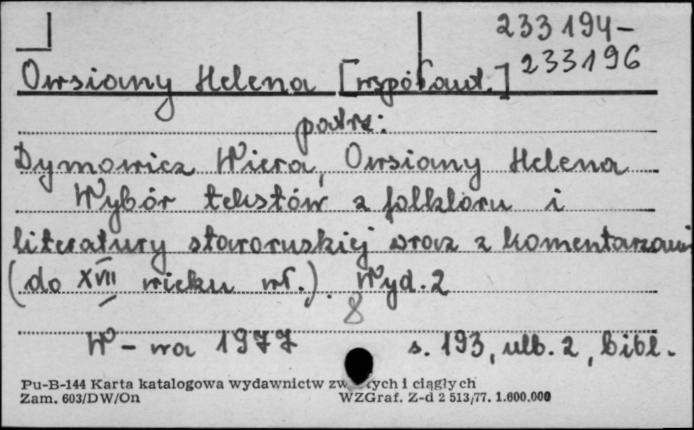 233194-
233196
Owsiany Helena [współaut.]
patrz:
Dymowicz Wiera, Owsiany Helena
Wybór tekstów z folkloru i
literatury staroruskiej wraz z komentarzami
(do XVII wieku wł.). Wyd. 2
8
W-wa 1977 s. 193, ulb. 2, bibl.
Pu-B-144 Karta katalogowa wydawnictw zw tych i ciągłych
Zam. 603/DW/On WZGraf. Z-d 2 513/77. 1.600.000